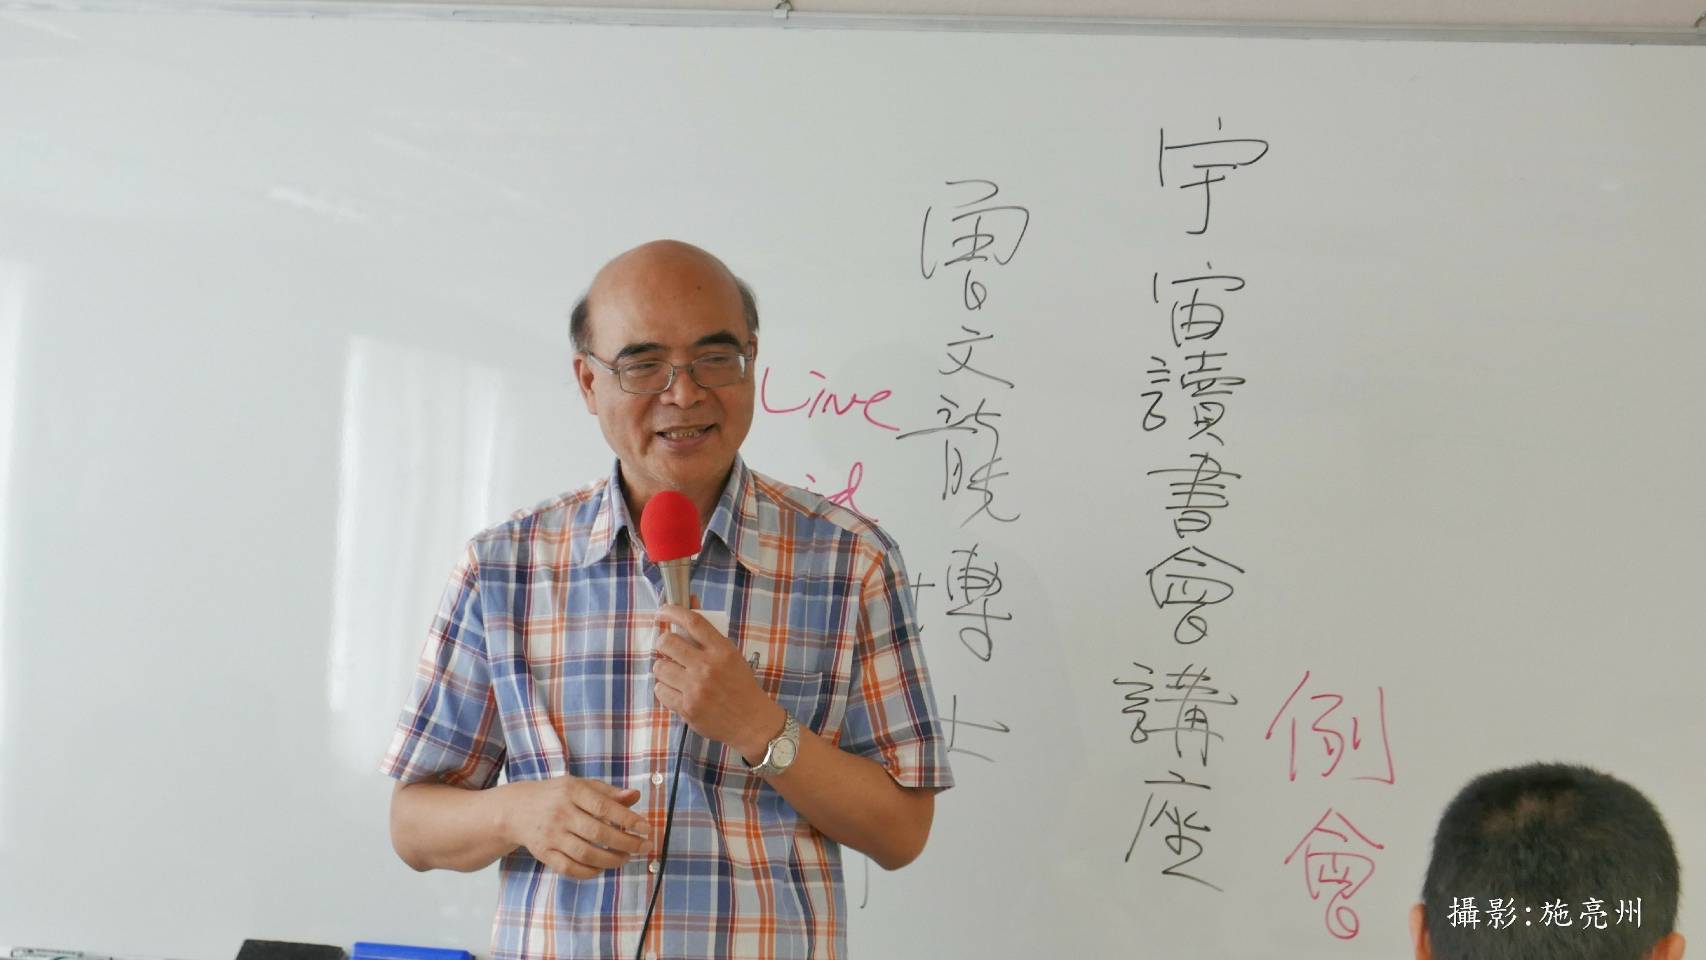 宇宙讀書會講座
曾文龍博士
Line
id
例會
攝影:施亮州